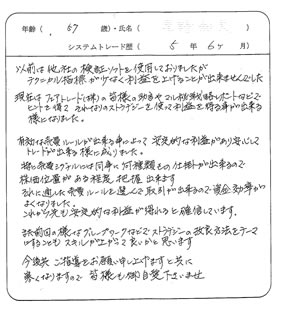 年齢 ( 67 歳)・氏名 (
システムトレード歴 ( 5 年 6ヶ月 )
以前は他社の検証ソフトを使用しておりましたが
テクニカル指標が少なく利益を上げることが出来ませんでした
現在はフェアトレード(株)の皆様の助言やマル秘戦略レポートなどで
ヒントを得て それらのストラテジーを使って利益を得る事が出来る
様になりました。
有効な売買ルールが出来る事によって 安定的な利益があり安心して
トレードが出来る様に成りました。
特に売買ルールには同時に何種類もの仕掛が出来るので
株価位置がある程度把握出来ます
それに適した売買ルールを選んで取引が出来るので資金効率が
よくなりました。
これからも安定的な利益が得れると確信しています。
また前回の様なグループワークなどでストラテジーの改良方法をテーマ
にすることも スキルが上がって良いかと思います
今後共 ご指導をお願い申し上げますと共に
寒くなりますので 皆様も御自愛下さいませ